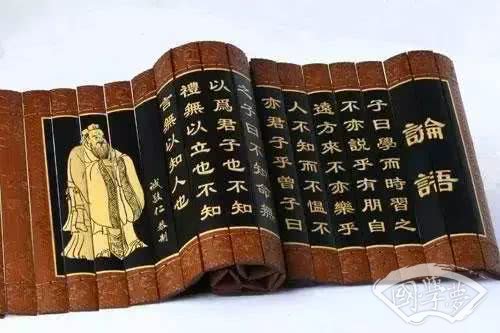 論語
子曰學而時習之
不亦說乎有朋自
遠方來不亦樂乎
人不知而不愠不
亦君子乎曾子曰
之子曰不知命無
以爲君子也不知
禮無以立也不知
言無以知人也
國學夢